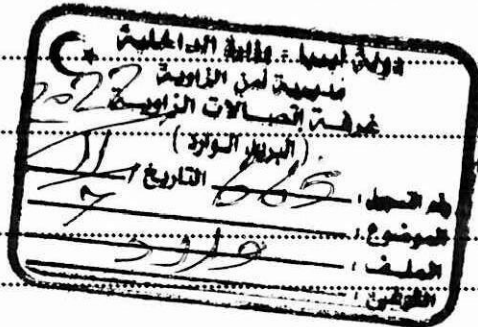 دولة ليبيا - وزارة الداخلية
مديرية أمن الزاوية
غرفة إتصالات الزاوية
( البريد الوارد )
رقم التسجيل : 665 التاريخ / 11 / 2022
الموضوع : 7
الملف : وارد
التوقيع :